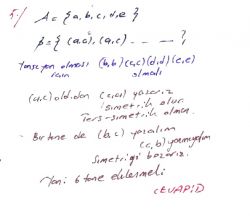 5.) A = {a,b,c,d,e}
β = { (a,a), (a,c) - - - - ?
Yansıyan olması için (b,b) (c,c) (d,d) (e,e) olmalı
(a,c) olduğundan (c,a) yazarız
simetrik olur
Ters-simetrik olmaz
Bir tane de (b,c) yazalım
(c,b) yazmayalım
Simetriği bozarız.
Yani 6 tane eklemeli
CEVAP: D